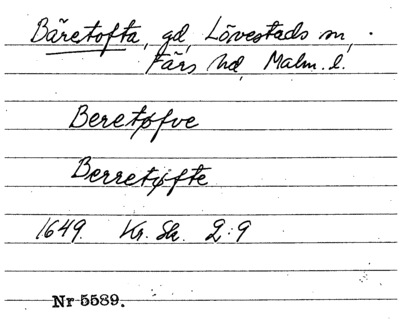 Bäretofta, gd, Lövestads sn,
Färs hd, Malm. l.
Beretøfve
Berretøfte
1649. Kr. Sk. 2:9
Nr 5589.